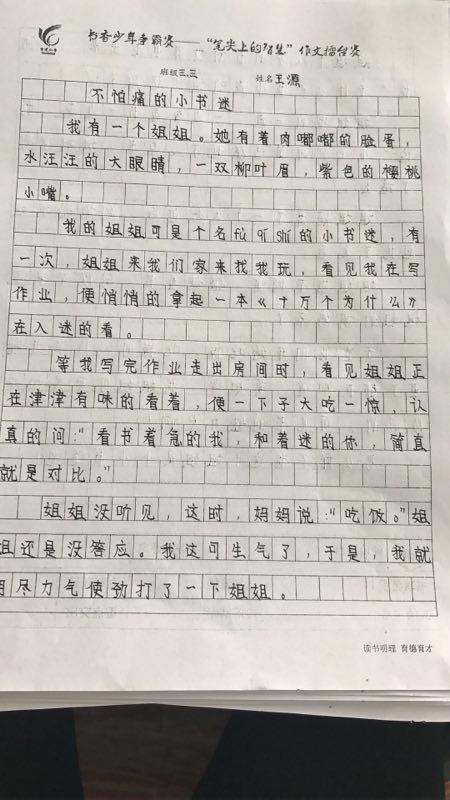 书香少年争霸赛——“笔尖上的智慧”作文擂台赛
班级三.三 姓名王源
不怕痛的小书迷
我有一个姐姐。她有着肉嘟嘟的脸蛋，
水汪汪的大眼睛，一双柳叶眉，紫色的樱桃
小嘴。
我的姐姐可是个名fù qí shí的小书迷，有
一次，姐姐来我们家来找我玩，看见我在写
作业，便悄悄的拿起一本《十万个为什么》
在入迷的看。
等我写完作业走出房间时，看见姐姐正
在津津有味的看着，便一下子大吃一惊，认
真的问：“看书着急的我，和着迷的你，简直
就是对比。”
姐姐没听见，这时，妈妈说：“吃饭。”姐
姐还是没答应。我这可生气了，于是，我就
用尽力气使劲打了一下姐姐。
读书明理 育德育才